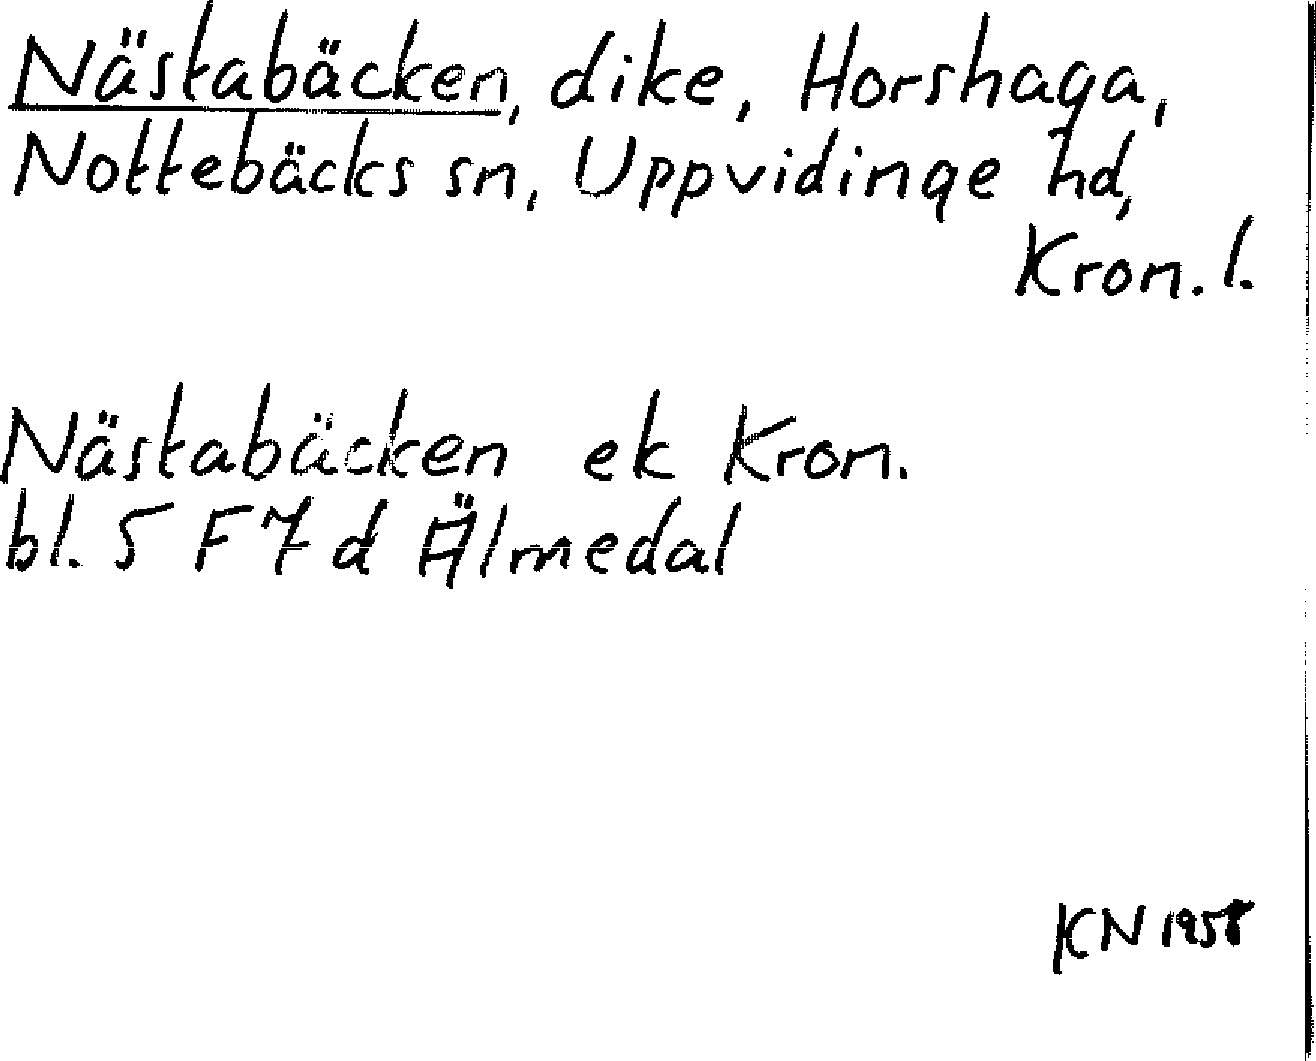 Nästabäcken, dike, Horshaga,
Nottebäcks sn, Uppvidinge hd,
Kron. l.
Nästabäcken ek Kron.
bl. 5 F 7 d Älmedal
KN 1958